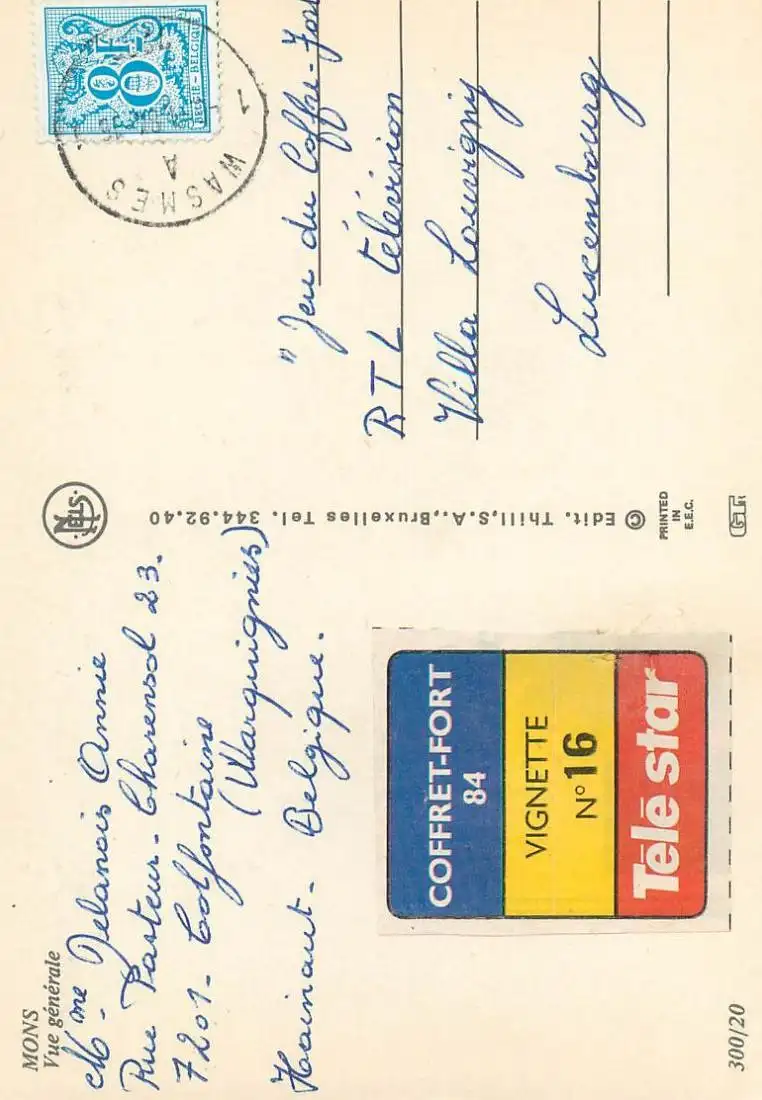 MONS
Vue générale
Mme Delanois Annie
Rue Pasteur-Charensol 23.
7201-Colfontaine
(Warquignies)
Hainaut-Belgique.
COFFRET-FORT
84
VIGNETTE
N° 16
Télé star
300/20
NELS
© Edit. Thill,S.A.,Bruxelles Tel. 344.92.40
PRINTED
IN
E.E.C.
8F
BELGIE-BELGIQUE
WASMES
A
"Jeu du Coffre-Fort
RTL Télévision
Villa Louvigny
Luxembourg